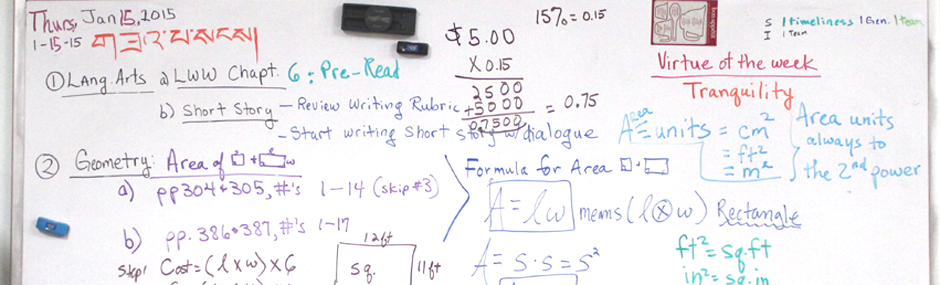 Thurs, Jan 15, 2015
1-15-15
① Lang. Arts a) LWW Chapt. 6: Pre-Read
b) Short Story - Review Writing Rubric
- Start writing short story w/dialogue
② Geometry: Area of
a) pp 304 & 305, #'s 1-14 (skip #3)
b) pp. 386 & 387, #'s 1-17
Step 1 Cost = (l x w) x 6
12 ft
sq. 11 ft
15% = 0.15
$5.00
X 0.15
2500
+5000 = 0.75
0.7500
Formula for Area
A = lw means (l ⊗ w) Rectangle
A = s·s = s²
S 1 timeliness 1 Gen. 1 team
I 1 Team
Virtue of the week
Tranquility
Area
A = units = cm²
= ft²
= m²
Area units
always to
the 2nd power
ft² = sq. ft
in² = sq. in